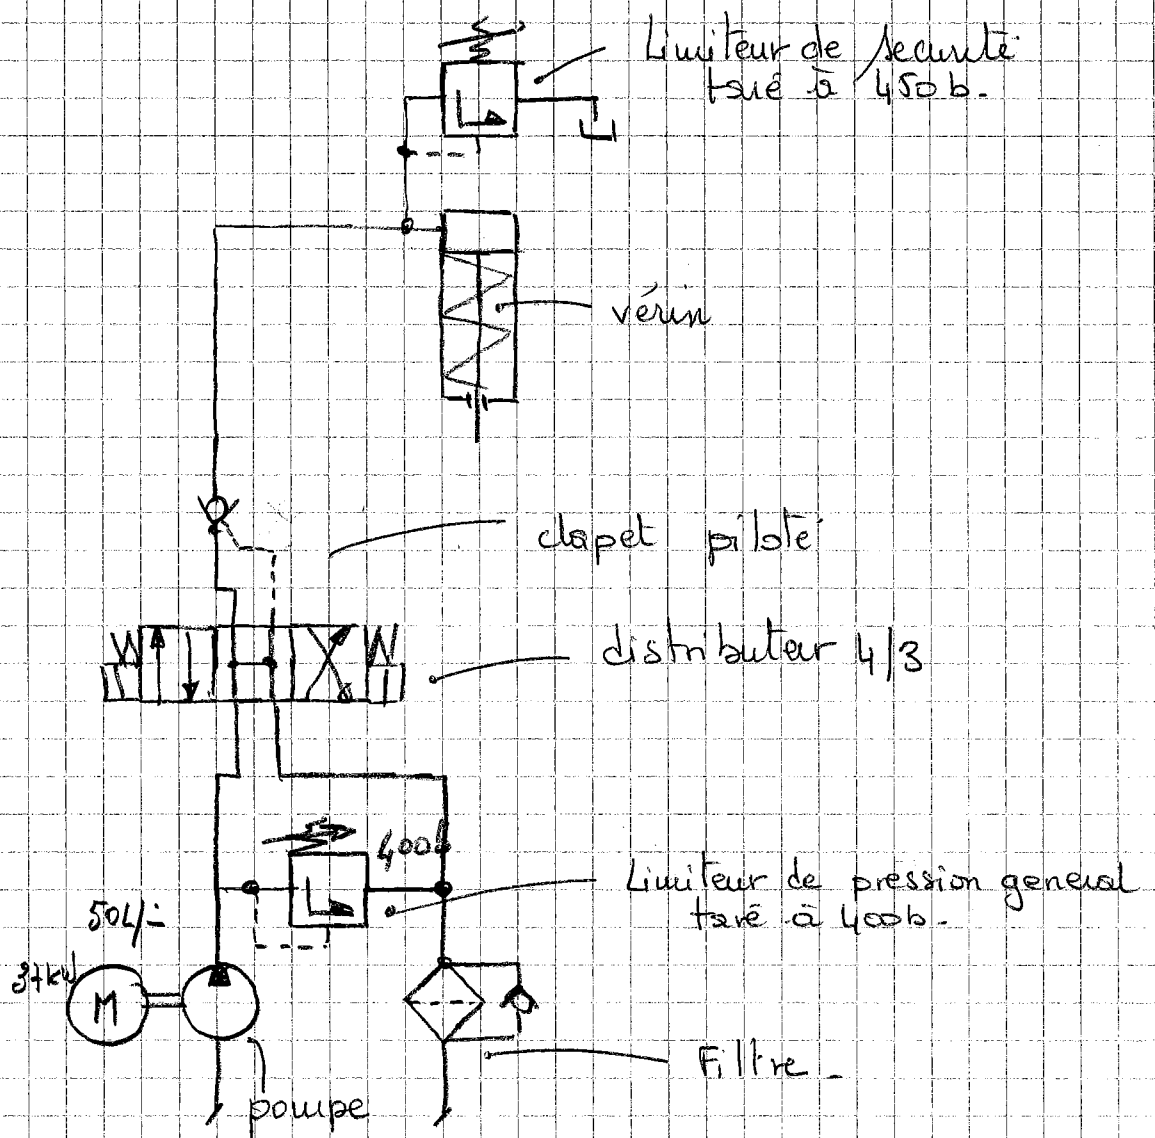 Limiteur de securité
taré à 450b.
vérin
clapet piloté
distributeur 4/3
400b
Limiteur de pression general
taré à 400b.
50L/-
37kW
M
Filtre
pompe